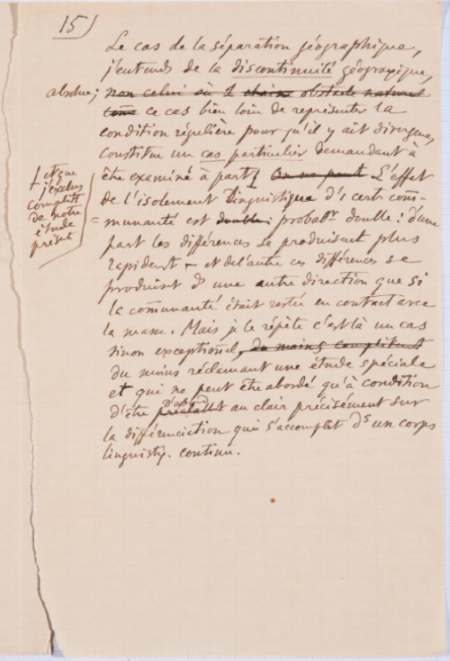 15)
Le cas de la séparation géographique,
j'entends de la discontinuité géographique,
absolue; non celui où l chaine obstacle naturel
comme ce cas bien loin de représenter la
condition régulière pour qu'il y ait divergence,
constitue un cas particulier demandant à
être examiné à part. On ne peut L'effet
et que
j'exclus
complètt
de notre
étude
présente
de l'isolement linguistique d'1 certe com-
munauté est double: probablt double: d'une
part les différences se produisent plus
rapidemt + et de l'autre ces différences se
produisent ds une autre direction que si
la communauté était restée en contact avec
la masse. Mais je le répète c'est là un cas
sinon exceptionnel, du moins complètement
du moins réclamant une étude spéciale
et qui ne peut être abordé qu'à condition
d'être d'abord au clair précisément sur
la différenciation qui s'accomplit ds un corps
linguistiq. continu.